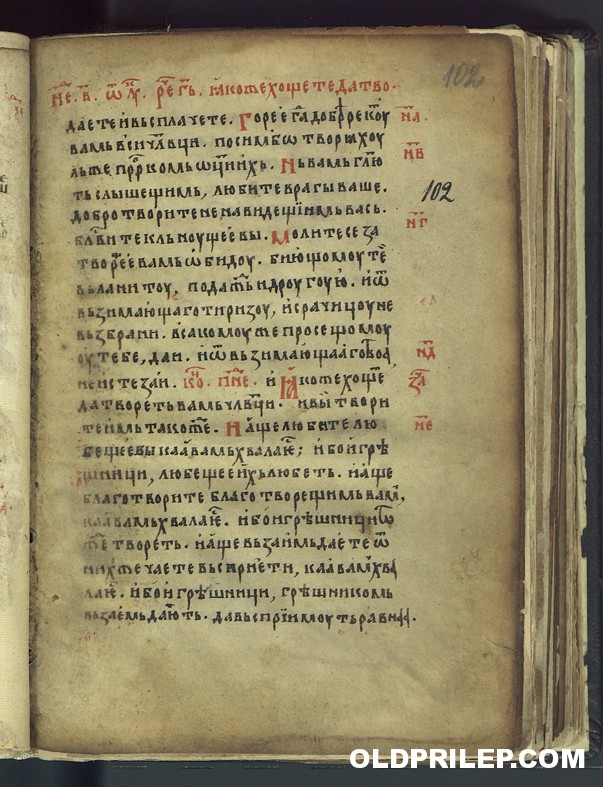 102
не. в҃. ѿ лꙋ. рече гь. ꙗкоже хощете да тво.
даете и вьсплачете. Горе егда добрѣ рекоу
вамь вси чл҃вци. по симь бо творꙗхоу
льже пррѡкомь ѡц҃и ихь. Нь вамь гл҃ю
слышещимь, любите врагы ваше.
добро творите ненавидещїимь вась.
бл҃вите кльноущее вы. Молите се за
творещее вамь ѡбидоу. биющомоу те
вь ланитоу, подажь и дроугоую. и ѿ
вьзимающаго ти ризоу, и срачицоу не
вьзбрани. всакомоу же просещомоу
оу тебе, даи. и ѿ вьзимающаа
не истезаи. ко. пн҃е. и ꙗкоже хощете
да твореть вамь чл҃вци. и вы твори
те имь такожде. И аще любите лю
бещее вы каа вамь хвала ѥ; ибо и грѣ
шници, любещее ихь любеть. и аще
благотворите благотворещимь вамь,
каа вамь хвала ѥ. ибо и грѣшници то
же твореть. и аще вьзаимь даете ѿ
нихже чаете вьсприети, каа вамь хва
ла ѥ. ибо и грѣшници, грѣшникомь
вьзаемь дають. да вьсприимоуть равна.
на
нв
102
нг
нд
за
не
OLDPRILEP.COM